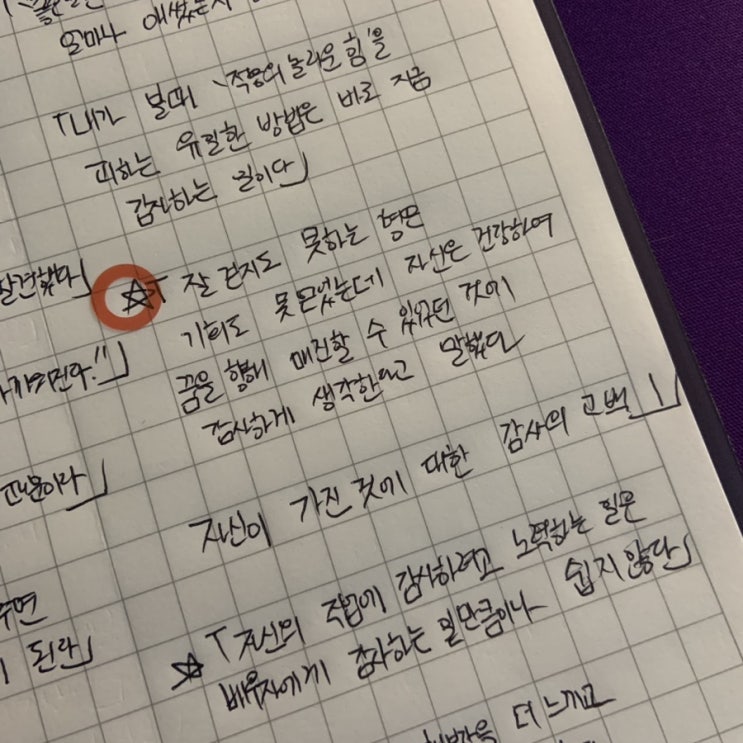 얼마나 애썼는지
「내가 볼때 '적응의 놀라운 힘'을
피하는 유일한 방법은 바로 지금
감사하는 일이다」
발견했다」
☆「잘 걷지도 못하는 형은
기회도 못 얻었는데 자신은 건강하여
꿈을 향해 매진할 수 있었던 것에
감사하게 생각한다고 말했다
때문이다」
자신이 가진 것에 대한 감사의 고백」
☆「자신의 직업에 감사하려고 노력하는 일은
배우자에게 감사하는 일만큼이나 쉽지 않다」
된다」
더 느끼고